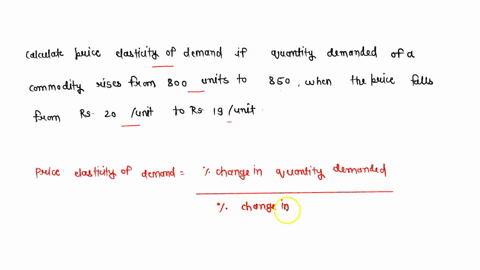 Calculate price elasticity of demand if quantity demanded of a
commodity rises from 800 units to 850, when the price falls
from Rs. 20 /unit to Rs 19/unit.
Price elasticity of demand = % change in quantity demanded
% change in